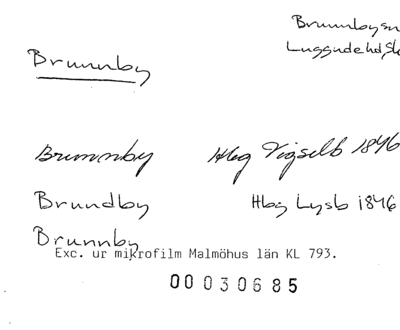 Brunnby
Brunnbysn
Luggude hd, Sk
Brunnby Hbg Vigselb 1846
Brundby Hbg Lysb 1846
Brunnby
Exc. ur mikrofilm Malmöhus län KL 793.
00030685